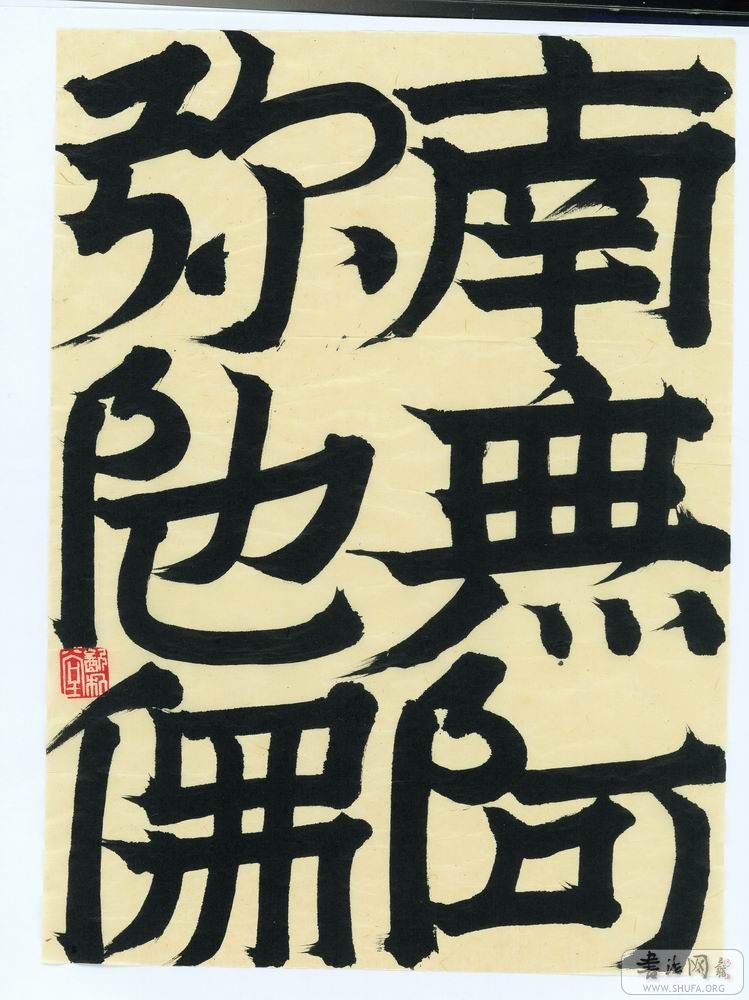 南無阿
弥阤佛
書法网
WWW.SHUFA.ORG